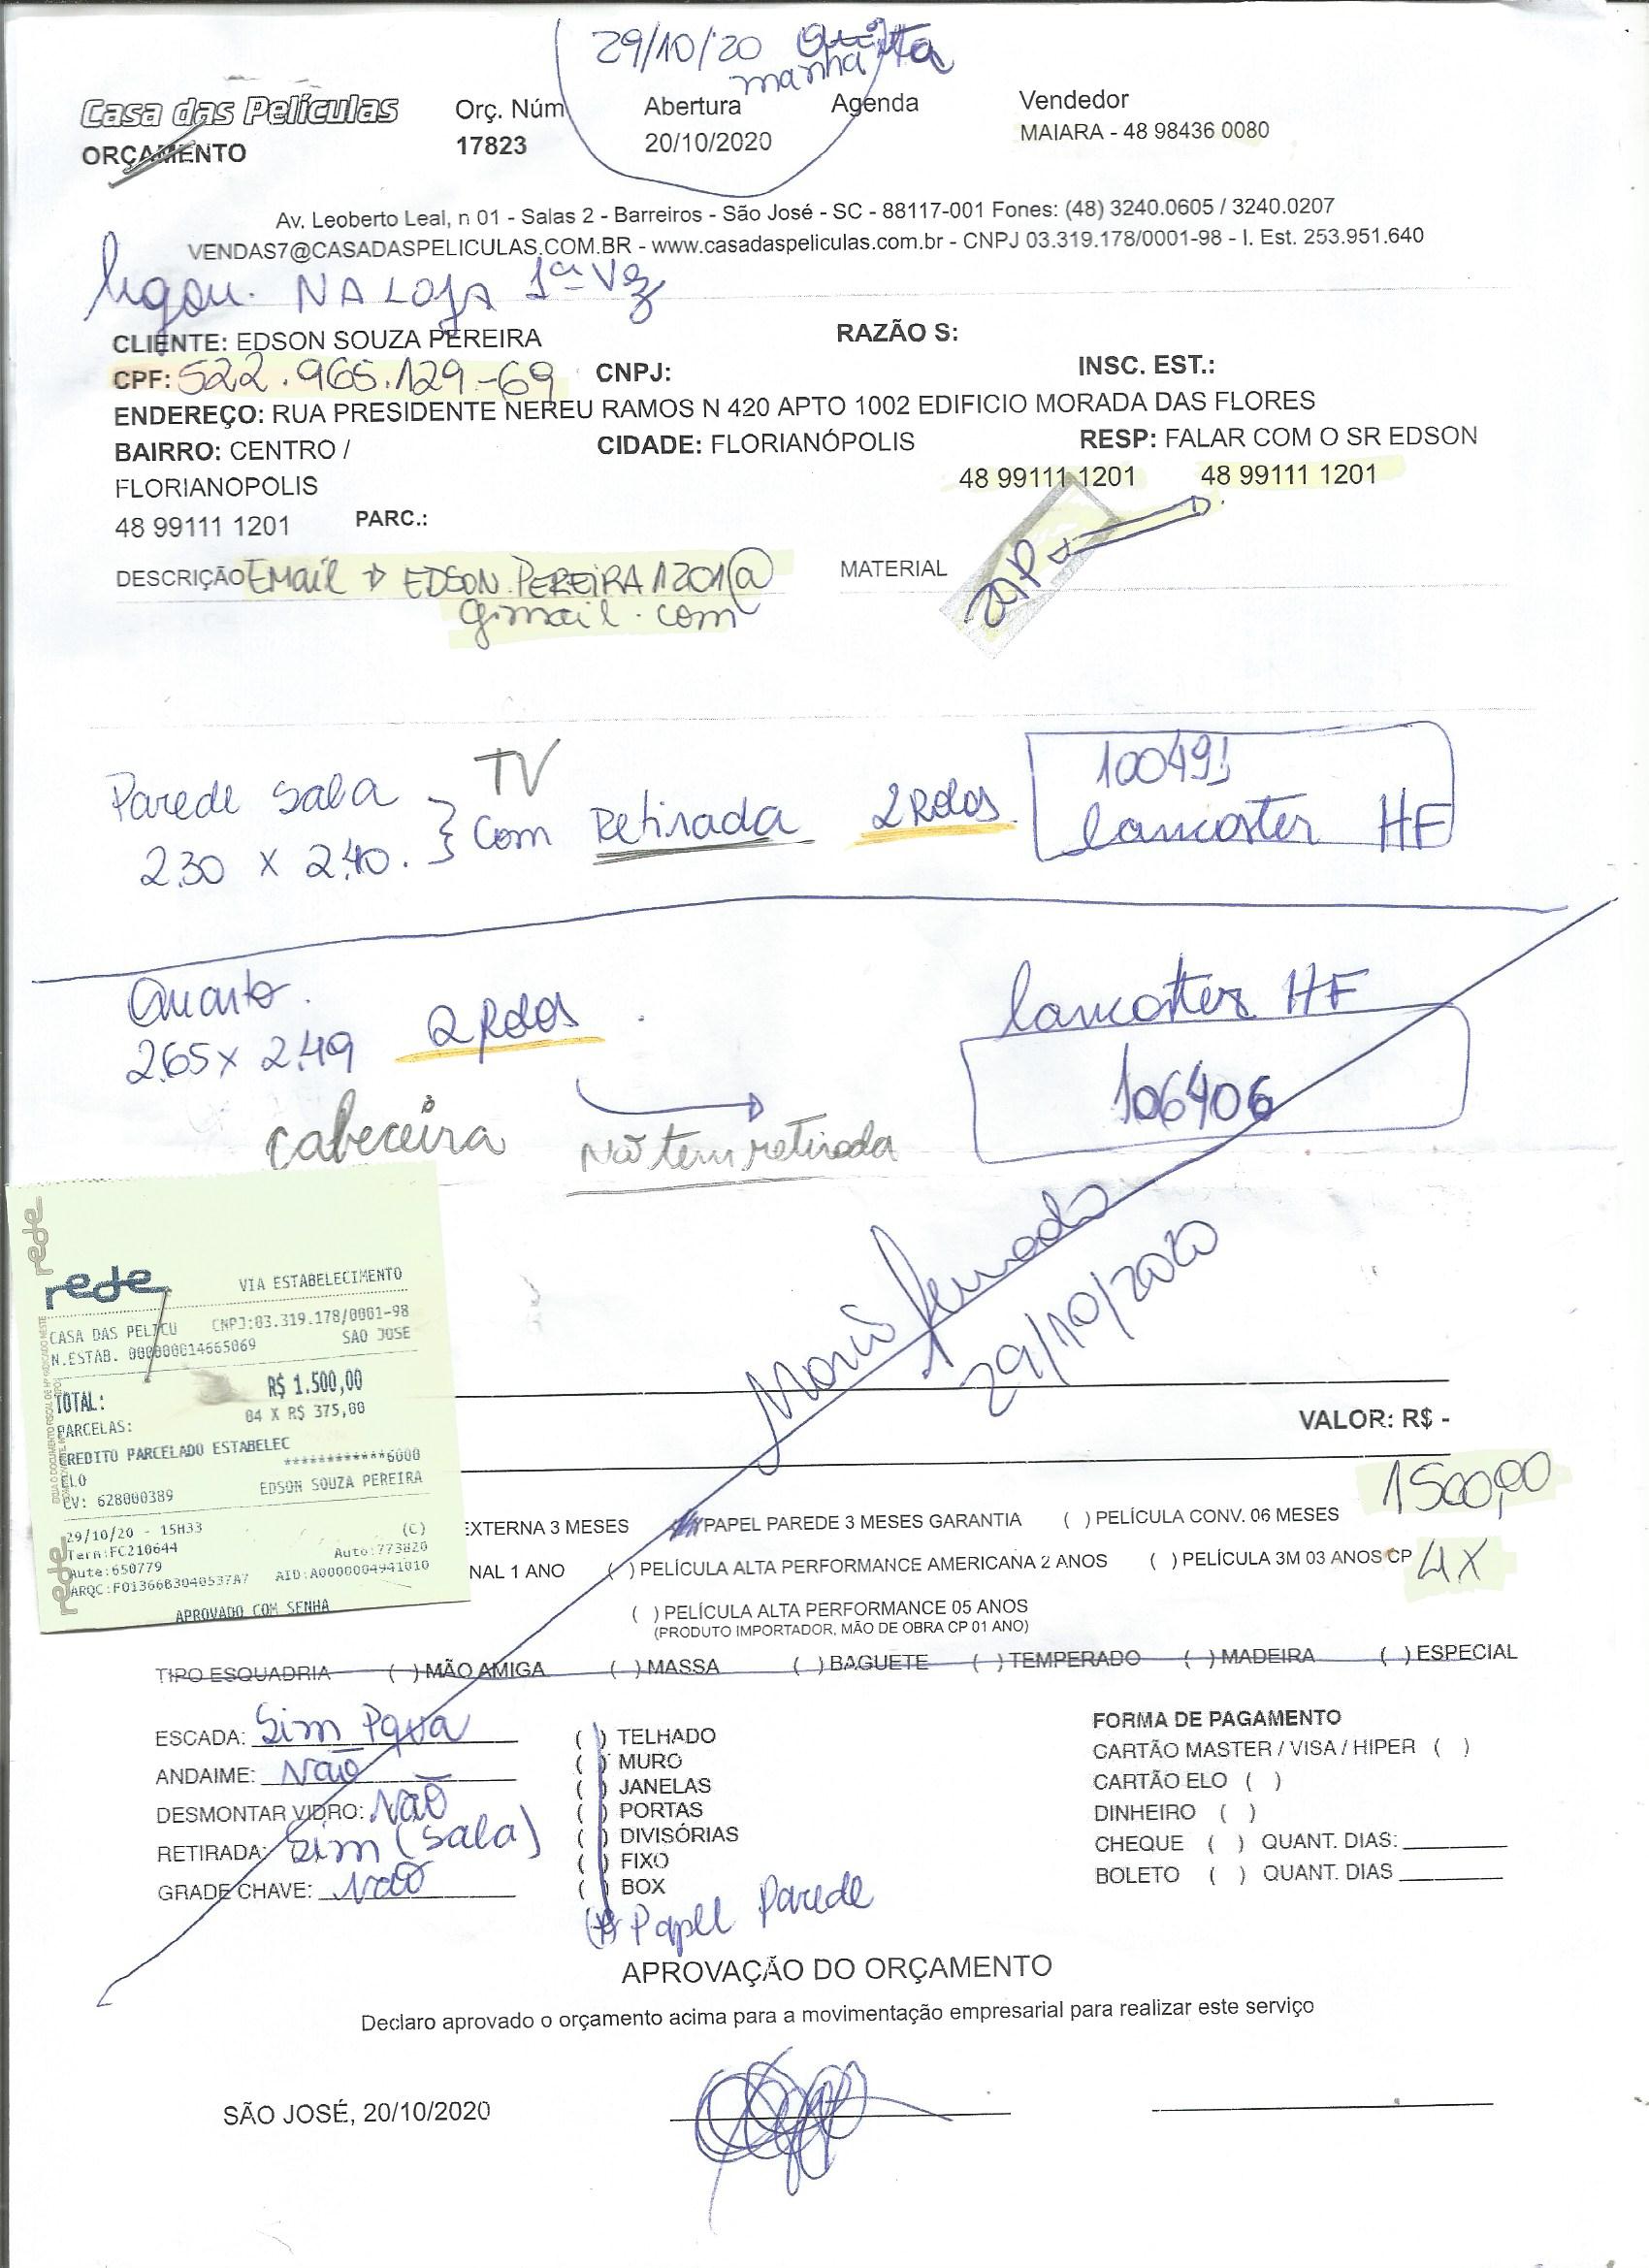 29/10/20 Quinta
manha
Casa das Películas
ORÇAMENTO
Orç. Núm
17823
Abertura
20/10/2020
Agenda
Vendedor
MAIARA - 48 98436 0080
Av. Leoberto Leal, n 01 - Salas 2 - Barreiros - São José - SC - 88117-001 Fones: (48) 3240.0605 / 3240.0207
VENDAS7@CASADASPELICULAS.COM.BR - www.casadaspeliculas.com.br - CNPJ 03.319.178/0001-98 - I. Est. 253.951.640
ligou. NA LOJA 1ª Vez
CLIENTE: EDSON SOUZA PEREIRA RAZÃO S:
CPF: 522.965.129-69 CNPJ: INSC. EST.:
ENDEREÇO: RUA PRESIDENTE NEREU RAMOS N 420 APTO 1002 EDIFICIO MORADA DAS FLORES
BAIRRO: CENTRO / CIDADE: FLORIANÓPOLIS RESP: FALAR COM O SR EDSON
FLORIANOPOLIS 48 99111 1201 48 99111 1201
48 99111 1201 PARC.:
DESCRIÇÃO EMail EDSON.PEREIRA1201@ MATERIAL ZAP
gmail.com
Parede sala TV
2.30 x 2.40. } com Retirada 2 Rolos 100491
lancaster HF
Quarto. lancaster HF
2.65 x 2.49 2 Rolos 106406
cabeceira Não tem retirada
29/10/2020
rede
rede VIA ESTABELECIMENTO
CASA DAS PELICU CNPJ:03.319.178/0001-98
N.ESTAB. 000000014665069 SAO JOSE
TOTAL: R$ 1.500,00
PARCELAS: 04 X R$ 375,00
CREDITO PARCELADO ESTABELEC
ELO ************6000
CV: 628000389 EDSON SOUZA PEREIRA
29/10/20 - 15H33 (C)
Term:FC210644 Auto:773820
Aute:650779
ARQC:F01366B3040537A7 AID:A0000004941010
APROVADO COM SENHA
rede
VALOR: R$ -
1500,00
EXTERNA 3 MESES PAPEL PAREDE 3 MESES GARANTIA ( ) PELÍCULA CONV. 06 MESES
NAL 1 ANO ( ) PELÍCULA ALTA PERFORMANCE AMERICANA 2 ANOS ( ) PELÍCULA 3M 03 ANOS CP 4X
( ) PELÍCULA ALTA PERFORMANCE 05 ANOS
(PRODUTO IMPORTADOR, MÃO DE OBRA CP 01 ANO)
TIPO ESQUADRIA ( ) MÃO AMIGA ( ) MASSA ( ) BAGUETE ( ) TEMPERADO ( ) MADEIRA ( ) ESPECIAL
ESCADA: Sim
ANDAIME: Não
DESMONTAR VIDRO: Não
RETIRADA: Sim (sala)
GRADE CHAVE: Não
( ) TELHADO
( ) MURO
( ) JANELAS
( ) PORTAS
( ) DIVISÓRIAS
( ) FIXO
( ) BOX
(X) Papel Parede
FORMA DE PAGAMENTO
CARTÃO MASTER / VISA / HIPER ( )
CARTÃO ELO ( )
DINHEIRO ( )
CHEQUE ( ) QUANT. DIAS:
BOLETO ( ) QUANT. DIAS
APROVAÇÃO DO ORÇAMENTO
Declaro aprovado o orçamento acima para a movimentação empresarial para realizar este serviço
SÃO JOSÉ, 20/10/2020